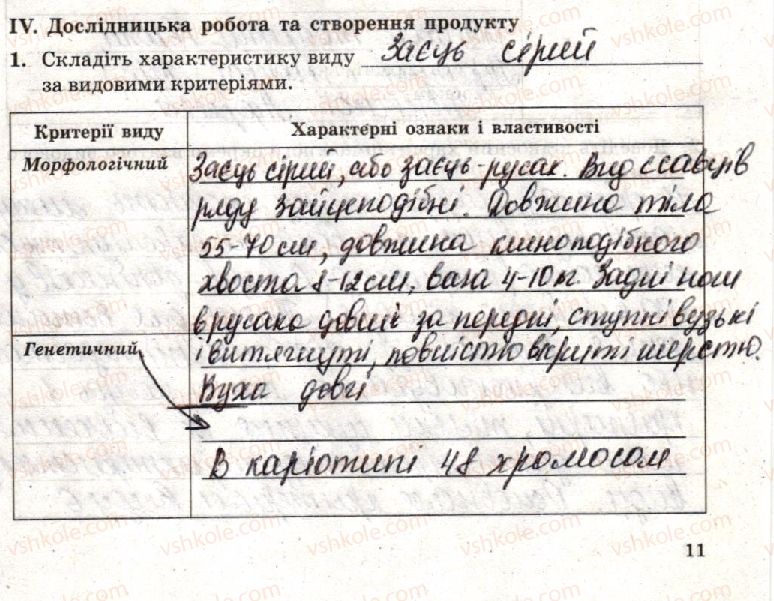 IV. Дослідницька робота та створення продукту
1. Складіть характеристику виду Заєць сірий
за видовими критеріями.
Критерії виду Характерні ознаки і властивості
Морфологічний Заєць сірий, або заєць-русак. Вид ссавців
ряду зайцеподібні. Довжина тіла
55-70 см, довжина клиноподібного
хвоста 8-12 см, вага 4-10 кг. Задні ноги
в русака довші за передні, ступні вузькі
Генетичний і витягнуті, повністю вкриті шерстю.
Вуха довгі
В каріотипі 48 хромосом
11